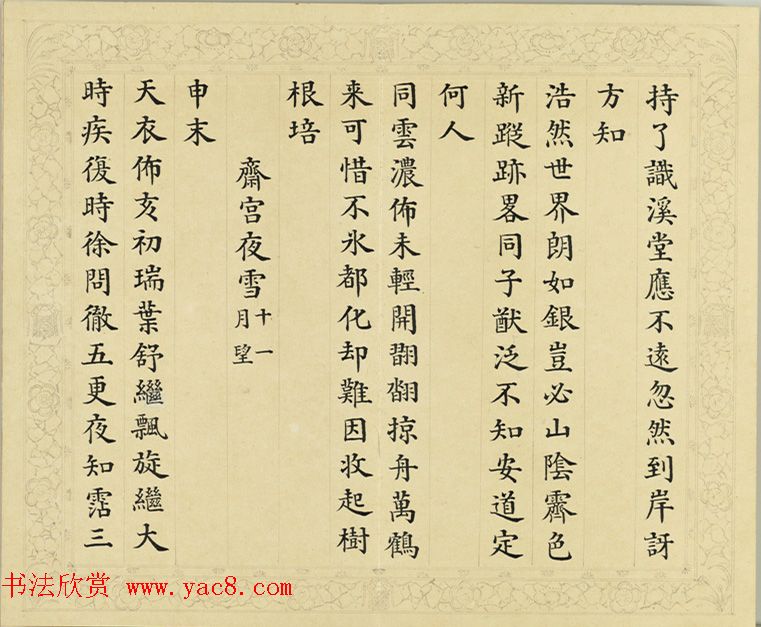 持了識溪堂應不遠忽然到岸訝
方知
浩然世界朗如銀豈必山陰霽色
新蹤跡畧同子猷泛不知安道定
何人
同雲濃佈未輕開翩翻掠舟萬鶴
来可惜不氷都化却難因收起樹
根培
齋宫夜雪
十一
月望
申末
天衣佈亥初瑞葉舒繼飄旋繼大
時疾復時徐問徹五更夜知霑三
书法欣赏 www.yac8.com